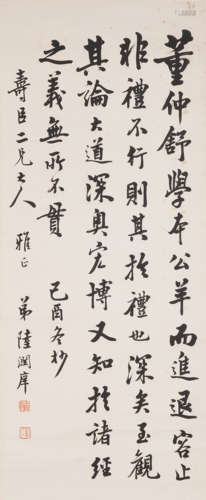 董仲舒學本公羊而進退容止
非禮不行則其於禮也深矣至觀
其論大道深奧宏博又知於諸經
之義無所不貫
壽臣二兄大人 雅正
己酉冬抄
弟陸潤庠